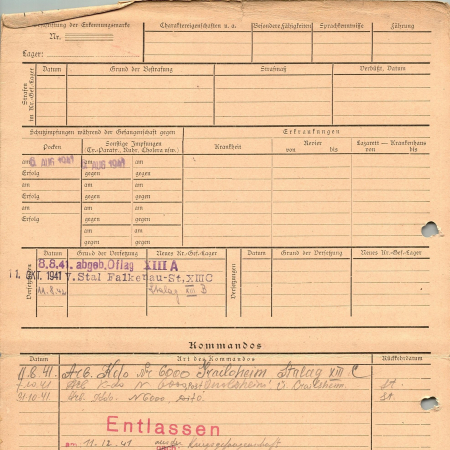 Beschriftung der Erkennungsmarke
Nr.
Lager:
Charaktereigenschaften u. a.
Besondere Fähigkeiten
Sprachkenntnisse
Führung
Strafen im Kr.-Gef.-Lager
Datum
Grund der Bestrafung
Strafmaß
Verbüßt, Datum
Schutzimpfungen während der Gefangenschaft gegen
Erkrankungen
Pocken
Sonstige Impfungen
(Ty.-Paraty., Ruhr, Cholera usw.)
Krankheit
Revier
von bis
Lazarett — Krankenhaus
von bis
am AUG 1941
am AUG 1941 am
Erfolg gegen gegen
am am am
Erfolg gegen gegen
am am am
Erfolg gegen gegen
am am
gegen gegen
am am
Versetzungen
Datum
Grund der Versetzung
Neues Kr.-Gef.-Lager
Versetzungen
Datum
Grund der Versetzung
Neues Kr.-Gef.-Lager
8.8.41. abgeb. Oflag XIII A
1941 v. Stal Falkenau-St. XIII C
Stalag XIII B
Kommandos
Datum
Art des Kommandos
Rückkehrdatum
8.41. Arb. Kdo Nr 6000 Krailsheim Stalag XIII C
Arb. K-do N 6000
.10.41 Arb. Kdo. N 6000.
Entlassen
am: 11.12.41 aus der Kriegsgefangenschaft